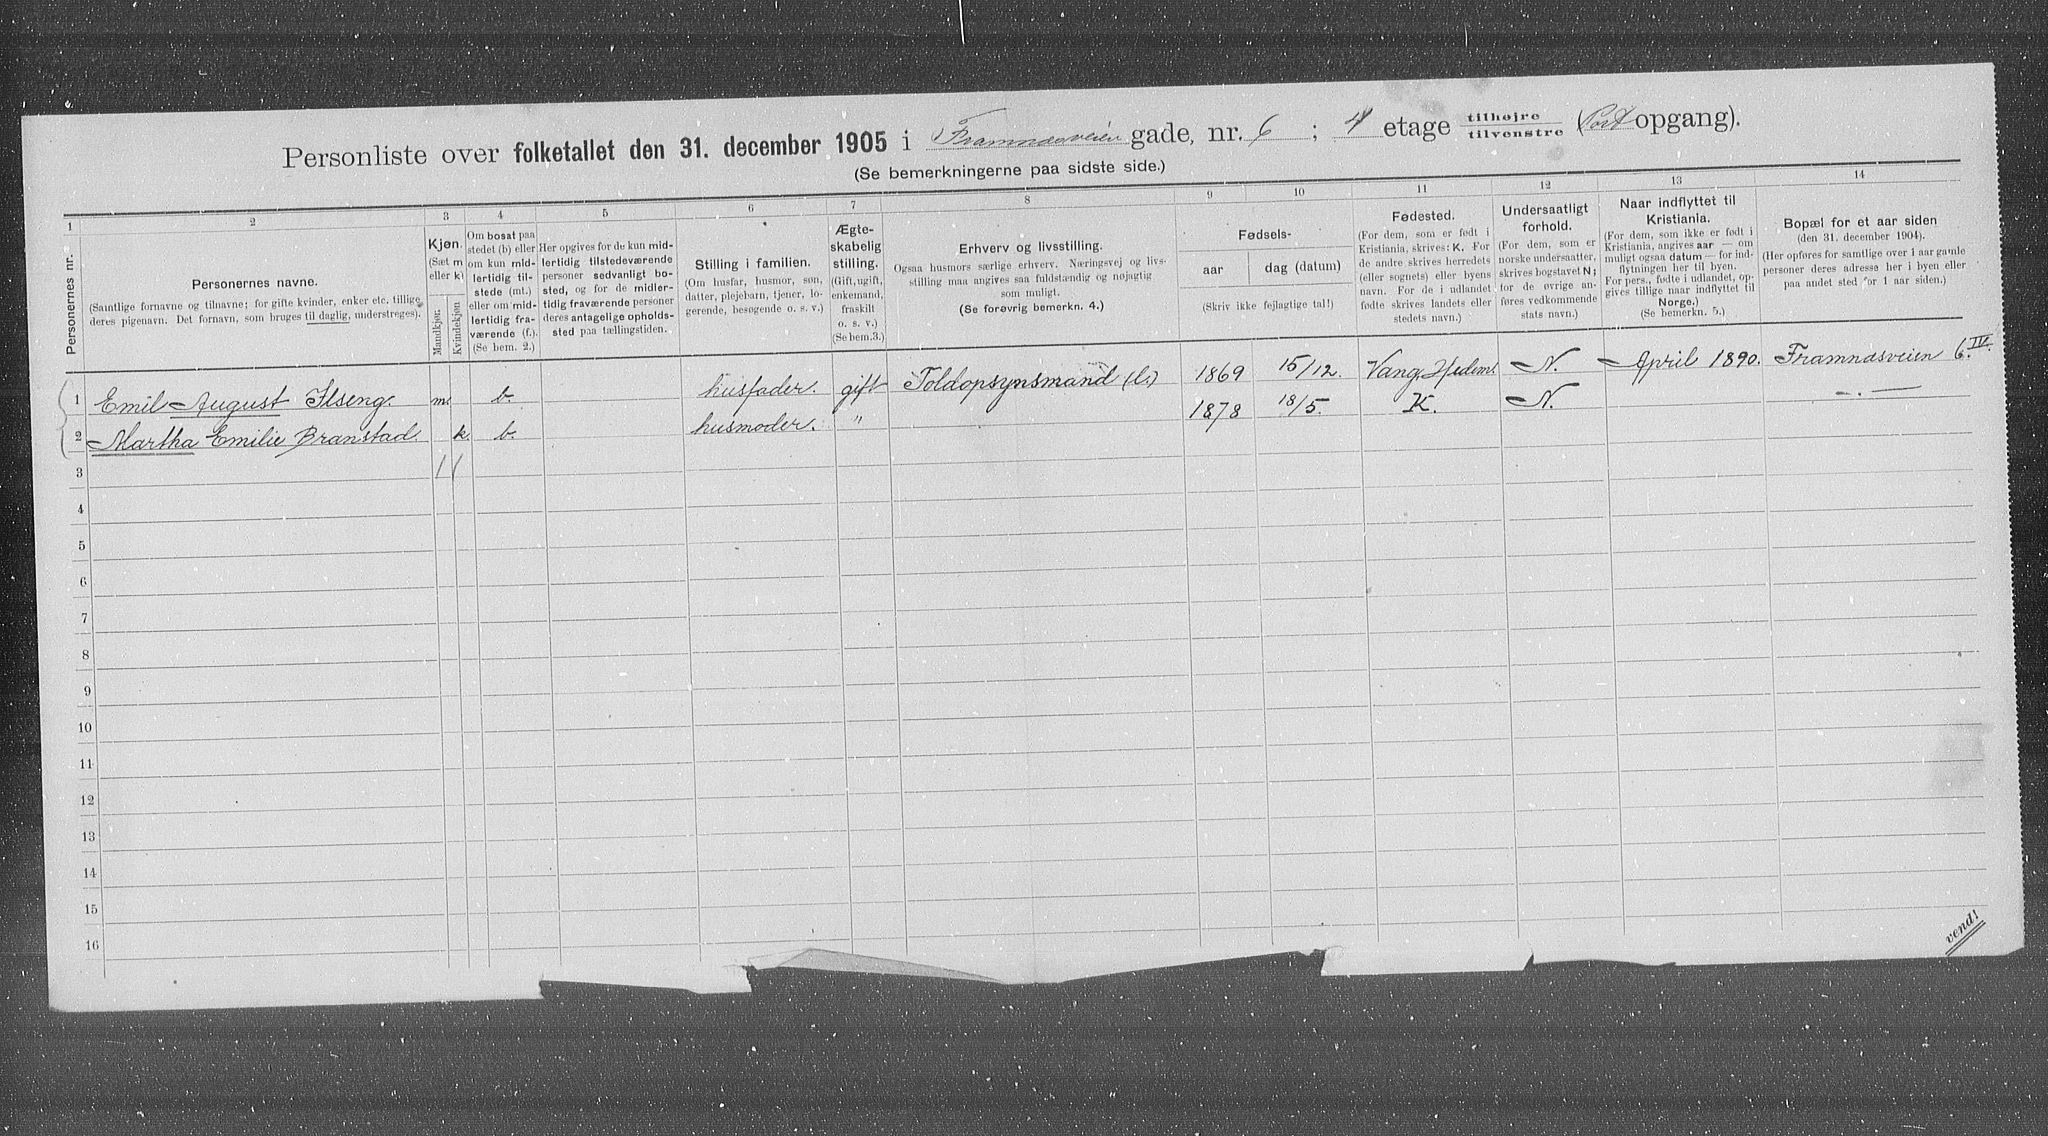 Personliste over folketallet den 31. december 1905 i Framnæsveien gade, nr. 6 ; 4 etage tilhøjre tilvenstre (Port opgang).
(Se bemerkningerne paa sidste side.)
1 2 3 4 5 6 7 8 9 10 11 12 13 14
Personernes nr.
Personernes navne.
(Samtlige fornavne og tilnavne; for gifte kvinder, enker etc. tillige
deres pigenavn. Det fornavn, som bruges til daglig, understreges).
Kjøn.
(Sæt m
eller k)
Mandkjøn.
Kvindekjøn.
Om bosat paa
stedet (b) eller
om kun mid-
lertidig til-
stede (mt.)
eller om mid-
lertidig fra-
værende (f.).
(Se bem. 2.)
Her opgives for de kun mid-
lertidig tilstedeværende
personer sedvanligt bo-
sted, og for de midler-
tidig fraværende personer
deres antagelige opholds-
sted paa tællingstiden.
Stilling i familien.
(Om husfar, husmor, søn,
datter, plejebarn, tjener, lo-
gerende, besøgende o. s. v.)
Ægte-
skabelig
stilling.
(Gift, ugift,
enkemand,
fraskilt
o. s. v.)
(Se bem.3.)
Erhverv og livsstilling.
Ogsaa husmors særlige erhverv. Næringsvej og livs-
stilling maa angives saa fuldstændig og nøjagtig
som muligt.
(Se forøvrig bemerkn. 4.)
Fødsels-
aar
dag (datum)
(Skriv ikke fejlagtige tal!)
Fødested.
(For dem, som er født i
Kristiania, skrives: K. For
de andre skrives herredets
(eller sognets) eller byens
navn. For de i udlandet
fødte skrives landets eller
stedets navn.)
Undersaatligt
forhold.
(For dem, som er
norske undersaatter,
skrives bogstavet N;
for de øvrige an-
føres vedkommende
stats navn.)
Naar indflyttet til
Kristiania.
(For dem, som ikke er født i
Kristiania, angives aar — om
muligt ogsaa datum — for ind-
flytningen her til byen.
For pers., fødte i udlandet, op-
gives tillige naar indflyttet til
Norge.)
(Se bemerkn. 5.)
Bopæl for et aar siden
(den 31. december 1904).
(Her opføres for samtlige over 1 aar gamle
personer deres adresse her i byen eller
paa andet sted for 1 aar siden.)
1 Emil August Ilseng. m. b. husfader. gift Toldopsynsmand (l.) 1869 15/12. Vang, Hedem. N. April 1890. Framnæsveien 6.IV.
2 Martha Emilie Branstad k. b. husmoder. " 1878 18/5. K. N. — . —
3 1 1
4
5
6
7
8
9
10
11
12
13
14
15
16
vend!